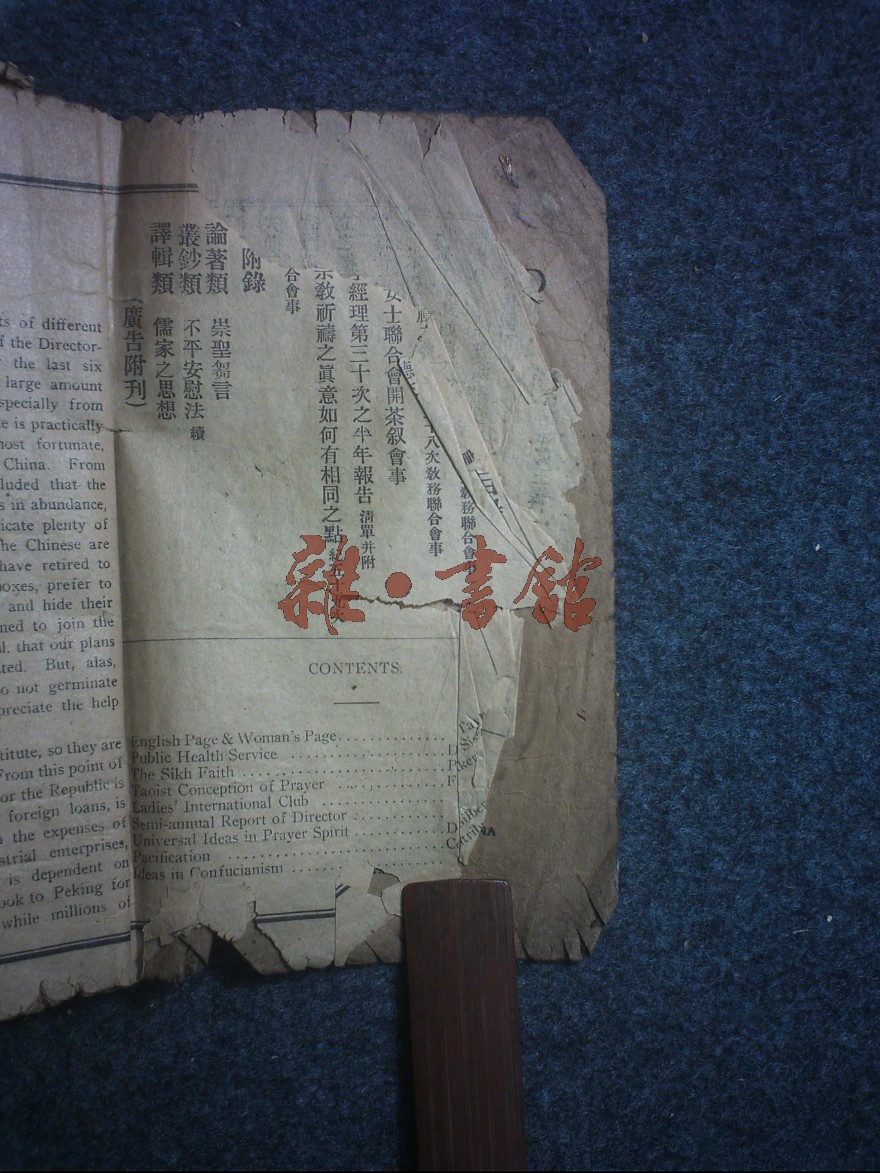 ts of different
f the Director-
the last six
large amount
specially from
te is practically
most fortunate,
China. From
luded that the
s in abundance,
icate plenty of
he Chinese are
have retired to
boxes, prefer to
and hide their
ned to join the
l. that our plans
ted. But, alas,
o not germinate
preciate the help
titute, so they are
From this point of
or the Republic is
foreign loans, is
n the expenses of
strial enterprises,
is dependent on
ook to Peking for
while millions of
務聯合會事
十八次教務聯合會事
女士聯合會開茶叙會事
經理第三十次之半年報告 清單并附
宗教祈禱之眞意如何有相同之點
合會事
附錄
論著類 崇聖芻言
叢鈔類 不平安慰法 續
譯輯類 儒家之思想
(廣告附刊)
雜·書館
CONTENTS.
English Page & Woman's Page
Public Health Service
The Sikh Faith
Taoist Conception of Prayer
Ladies' International Club
Semi-annual Report of Director
Universal Ideas in Prayer Spirit
Pacification
Ideas in Confucianism